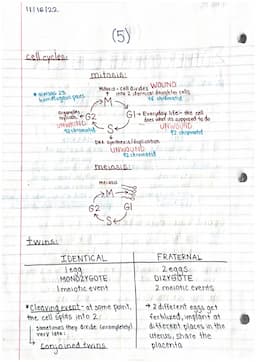 11/16/22
(5)
cell cycles:
mitosis:
Mitosis - cell divides WOUND
into 2 identical daughter cells
M
G2
G1 → Everyday life - the cell
does what it's supposed to do
UNWOUND
UNWOUND
S
DNA synthesis/replication
UNWOUND
meiosis:
meiosis
M
G2 G1
S
twins:
IDENTICAL FRATERNAL
1 egg 2 eggs
MONOZYGOTE DIZYGOTE
1 meiotic event 2 meiotic events
• Cleaving event - at some point,
the cell splits into 2
sometimes they divide (incompletely)
very late:
↳ Conjoined twins
→ 2 different eggs get
fertilized, implant at
different places in the
uterus, share the
placenta